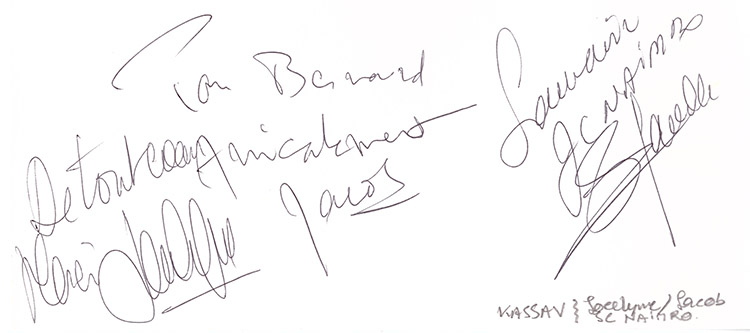 Pour Bernard
De tout coeur
Amicalement
Jacob
JC NAIMRO
KASSAV } Jocelyne / Jacob
JC NAIMRO.